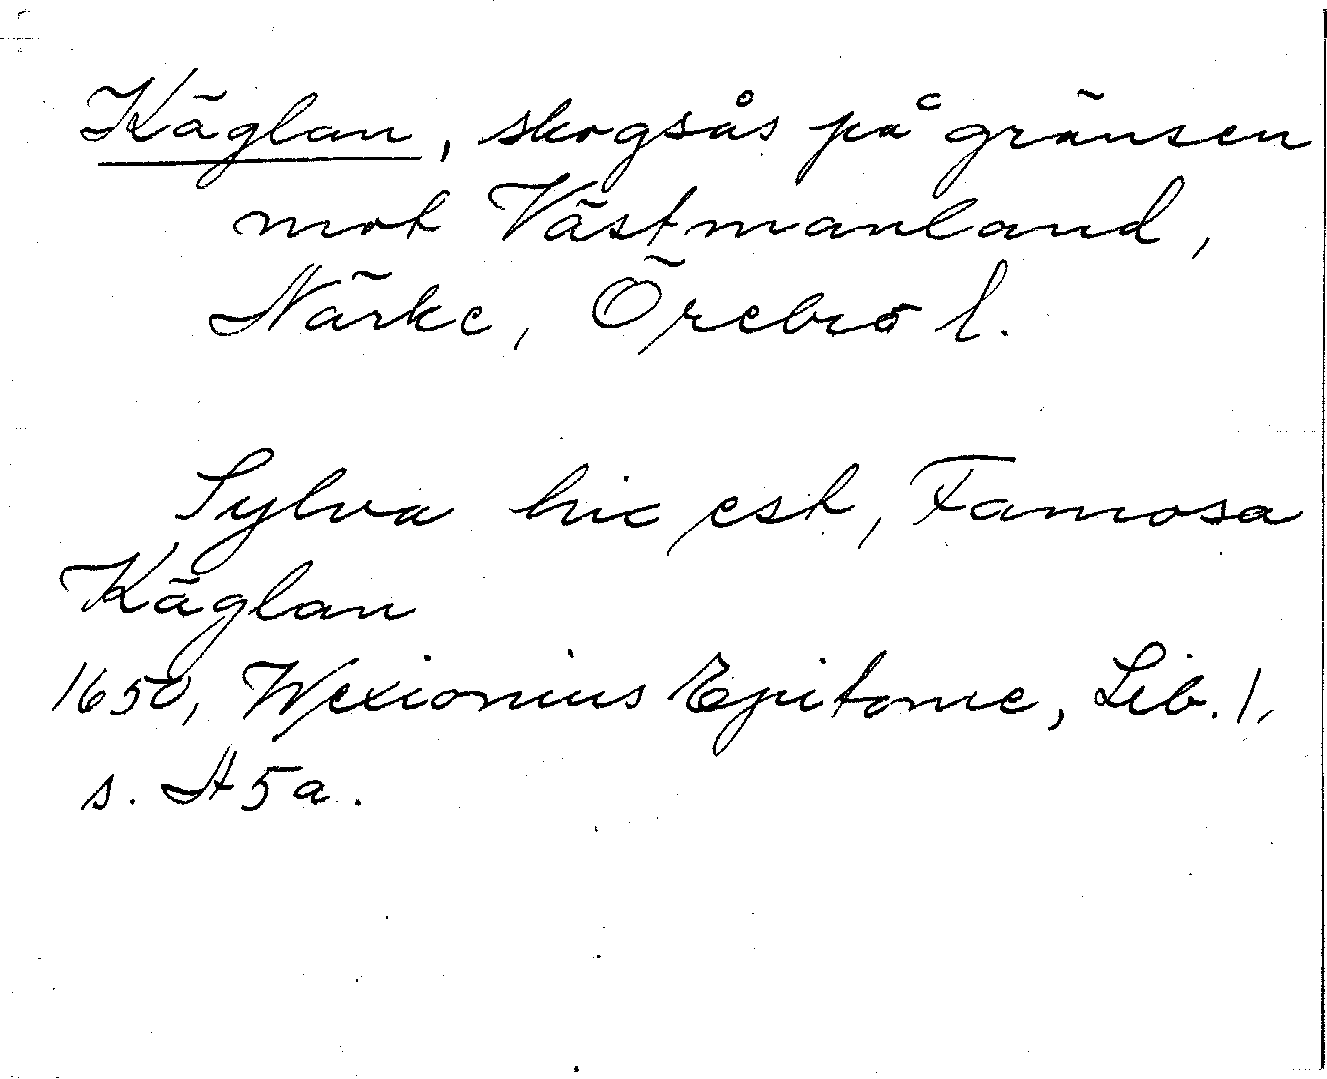 Käglan, skogsås på gränsen
mot Västmanland,
Närke, Örebro l.
Sylva hic est, Famosa
Käglan
1650, Wexionius Epitome, Lib. 1,
s. H5a.